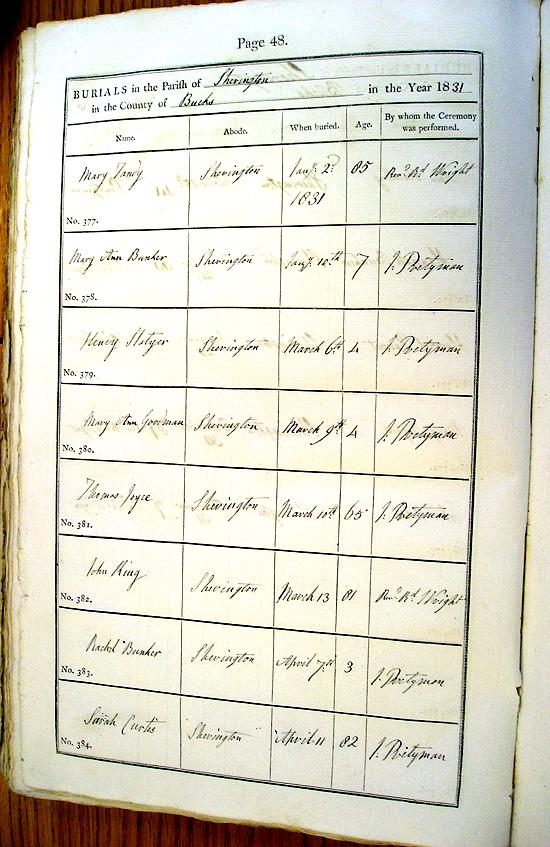 Page 48.
BURIALS in the Parish of Sherington
in the County of Bucks in the Year 1831
Name. Abode. When buried. Age. By whom the Ceremony was performed.
Mary Tandy Sherington Jany. 2d 1831 85 Revd. Rd. Wright
No. 377.
Mary Ann Bunker Sherington Jany. 10th 7 J. Pretyman
No. 378.
Henry Slatyer Sherington March 6th 4 J. Pretyman
No. 379.
Mary Ann Goodman Sherington March 9th 4 J. Pretyman
No. 380.
Thomas Joyce Sherington March 10th 65 J. Pretyman
No. 381.
John King Sherington March 13 81 Revd. Rd. Wright
No. 382.
Rachel Bunker Sherington April 7th 3 J. Pretyman
No. 383.
Sarah Curtis Sherington April 11 82 J. Pretyman
No. 384.